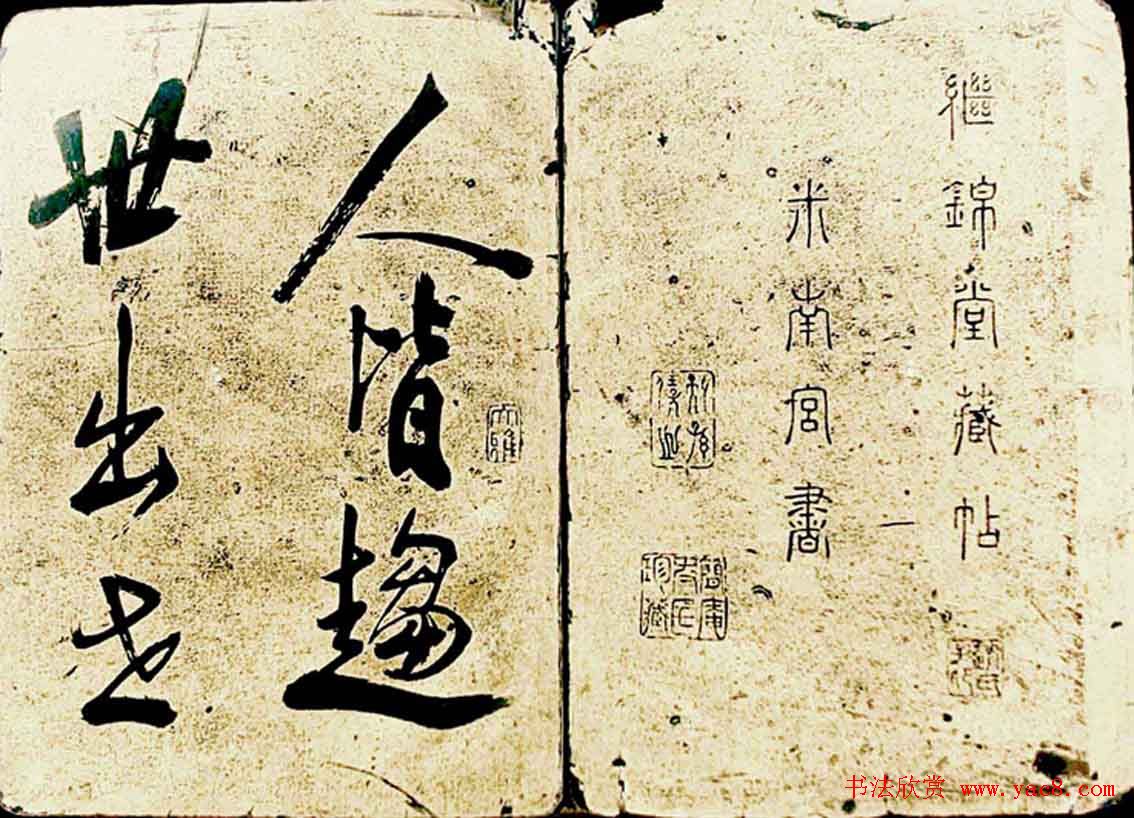 繼錦堂藏帖
一
米南宮書
大雅
人皆趨
世出世
书法欣赏 www.yac8.com